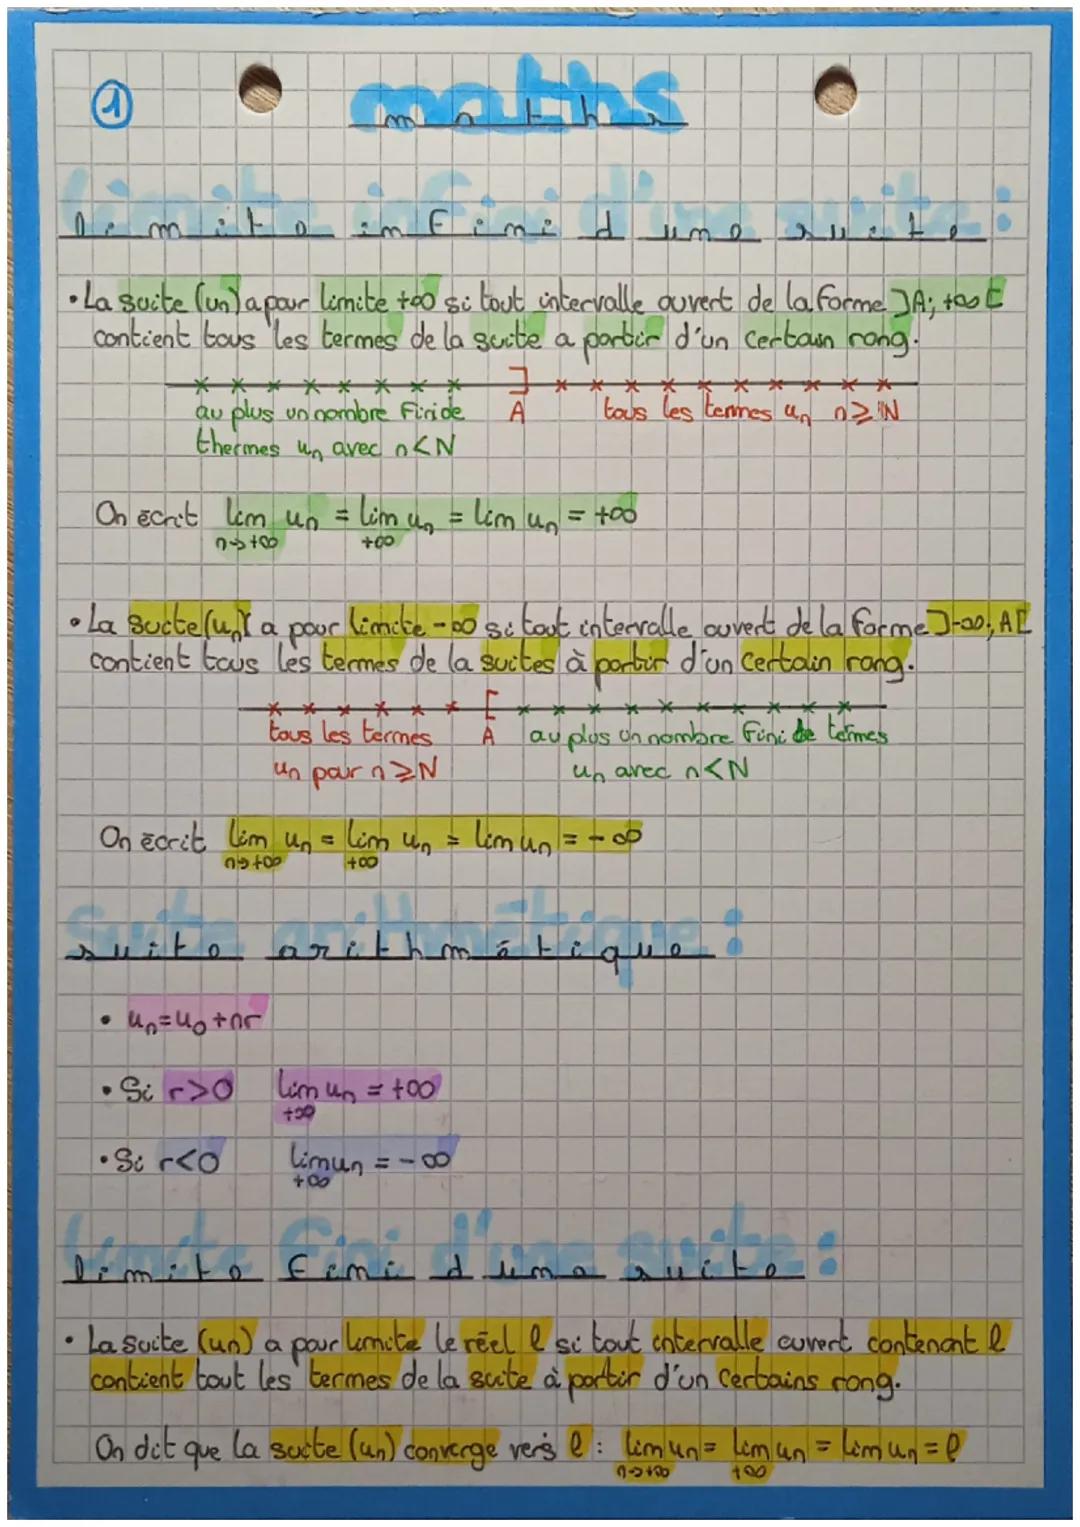 ①
maths
Limite infini d'une suite :
• La suite (un) a pour limite +∞ si tout intervalle ouvert de la forme ]A; +∞[
contient tous les termes de la suite a partir d'un certain rang.
] au plus un nombre fini de A tous les termes un n ≥ N
thermes un avec n < N
On écrit lim un = lim un = lim un = +∞
n→+∞ +∞
• La suite (un) a pour limite -∞ si tout intervalle ouvert de la forme ]-∞; A[
contient tous les termes de la suites à partir d'un certain rang.
[
tous les termes A au plus un nombre fini de termes
un pour n ≥ N un avec n < N
On écrit lim un = lim un = lim un = -∞
n→+∞ +∞
Suite arithmétique :
• un = u0 + nr
• Si r > 0 lim un = +∞
+∞
• Si r < 0 lim un = -∞
+∞
Limite fini d'une suite :
• La suite (un) a pour limite le réel l si tout intervalle ouvert contenant l
contient tout les termes de la suite à partir d'un certains rang.
On dit que la suite (un) converge vers l : lim un = lim un = lim un = l
n→+∞ +∞